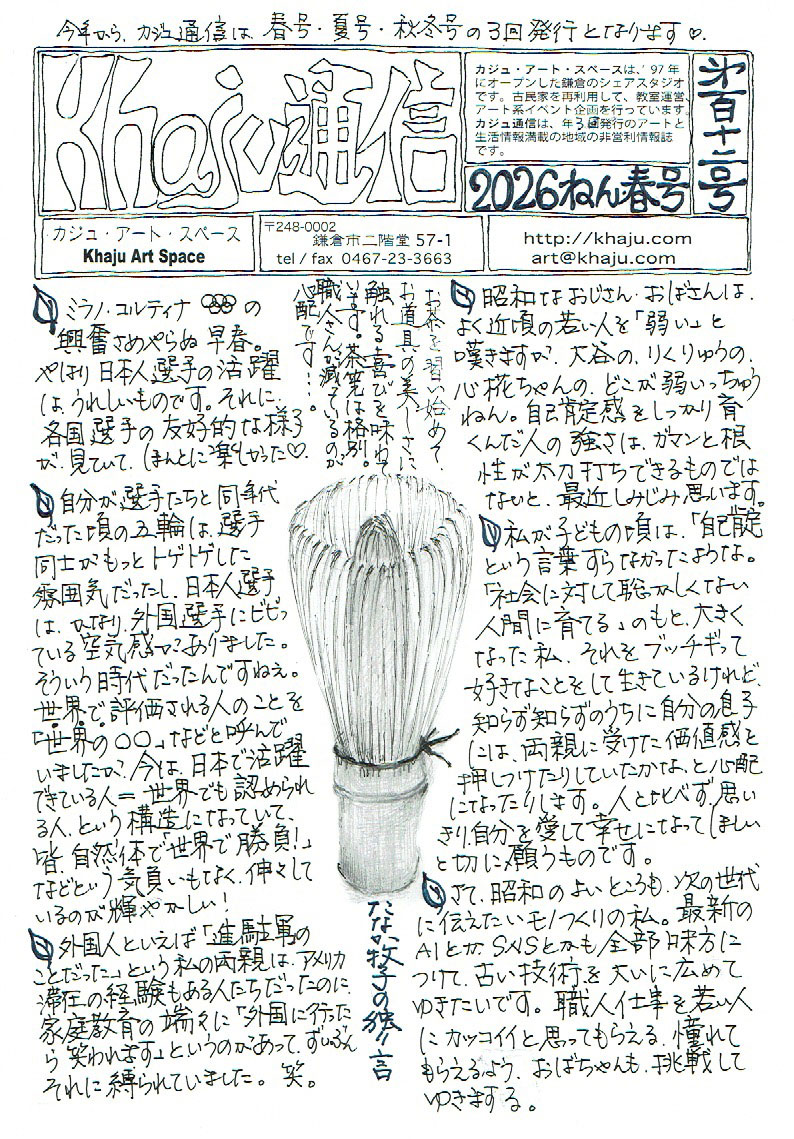 今年から、カジュ通信は、春号・夏号・秋冬号の3回発行となります♡。
Khaju通信
カジュ・アート・スペースは、'97年
にオープンした鎌倉のシェアスタジオ
です。古民家を再利用して、教室運営、
アート系イベント企画を行っています。
カジュ通信は、年3回発行のアートと
生活情報満載の地域の非営利情報誌
です。
2026ねん春号
第百十二号
カジュ・アート・スペース
Khaju Art Space
〒248-0002
鎌倉市二階堂 57-1
tel / fax 0467-23-3663
http://khaju.com
art@khaju.com
ミラノ・コルティナ の
興奮さめやらぬ 早春。
やはり 日本人選手の活躍
は、うれしいものです。それに、
各国選手の友好的な様子
が、見ていて、ほんとに楽しかった♡。
自分が選手たちと同年代
だった頃の五輪は、選手
同士がもっとトゲトゲした
雰囲気だったし、日本人選手
は、かなり、外国選手にビビっ
ている空気感がありました。
そういう時代だったんですねぇ。
世界で評価される人のことを
「世界の〇〇」などと呼んで
いましたが、今は、日本で活躍
できている人=世界でも認められ
る人、という構造になっていて、
皆、自然体で「世界で勝負!」
などという気負いもなく、伸々して
いるのが輝やかしい!
外国人といえば「進駐軍の
ことだった」という私の両親は、アメリカ
滞在の経験もある人たちだったのに、
家庭教育の端々に「外国に行った
ら笑われます」というのがあって、ずいぶん
それに縛られていました。笑。
お茶を習い始めて、
お道具の美しさに
触れる喜びを味わって
います。茶筅は格別。
職人さんが減っているのが
心配です…。
たなか牧子の独り言
昭和なおじさん・おばさんは、
よく近頃の若い人を「弱い」と
嘆きますが、大谷の、りくりゅうの、
心椛ちゃんの、どこが弱いっちゅう
ねん。自己肯定感をしっかり育
くんだ人の強さは、ガマンと根
性が太刀打ちできるものでは
ないと、最近しみじみ思います。
私が子どもの頃は、「自己肯定」
という言葉すらなかったような。
「社会に対して恥ずかしくない
人間に育てる」のもと、大きく
なった私、それをブッチギって
好きなことをして生きているけれど、
知らず知らずのうちに自分の息子
には、両親に受けた価値感を
押しつけたりしていたかな、と心配
になったりします。人と比べず、思い
きり自分を愛して幸せになってほしい
と切に願うものです。
さて、昭和のよいところも、次の世代
に伝えたいモノつくりの私。最新の
AIとか、SNSとかも全部味方に
つけて、古い技術を大いに広めて
ゆきたいです。職人仕事を若い人
にカッコイイと思ってもらえる、憧れて
もらえるよう、おばちゃんも、挑戦して
ゆきまする。